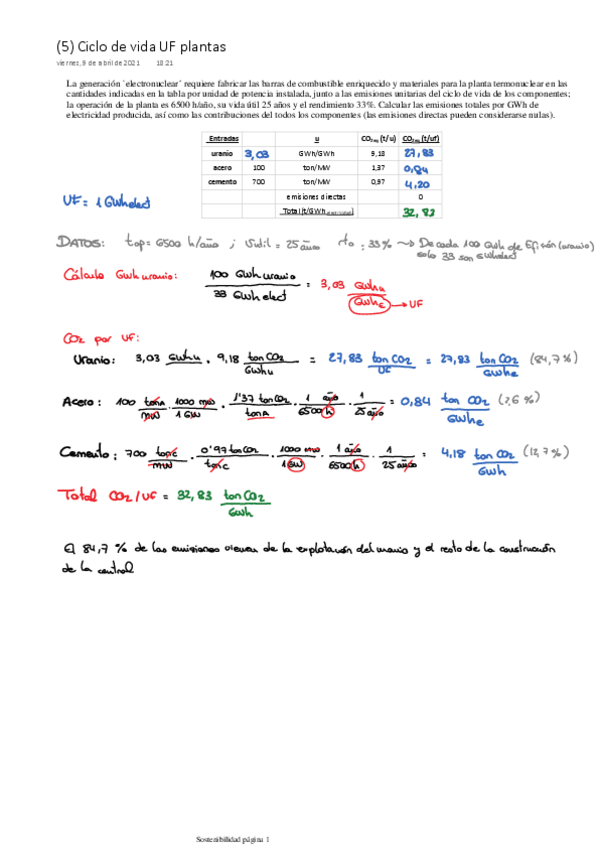 (5) Ciclo de vida UF plantas
viernes, 9 de abril de 2021 18:21
La generación `electronuclear´ requiere fabricar las barras de combustible enriquecido y materiales para la planta termonuclear en las
cantidades indicadas en la tabla por unidad de potencia instalada, junto a las emisiones unitarias del ciclo de vida de los componentes;
la operación de la planta es 6500 h/año, su vida útil 25 años y el rendimiento 33%. Calcular las emisiones totales por GWh de
electricidad producida, así como las contribuciones del todos los componentes (las emisiones directas pueden considerarse nulas).
Entradas u CO2eq (t/u) CO2eq (t/uf)
uranio 3,03 GWh/GWh 9,18 27,83
acero 100 ton/MW 1,37 0,84
cemento 700 ton/MW 0,97 4,20
emisiones directas 0
Total (t/GWh electricidad) 32,83
UF = 1 GWh elect
DATOS: top = 6500 h/año ; Vútil = 25 años rto = 33% → De cada 100 GWh de Efisión (uranio)
solo 33 son GWh elect
Cálculo GWh uranio: 100 GWh uranio / 33 GWh elect = 3,03 GWhu / GWhe → UF
CO2 por UF:
Uranio: 3,03 GWhu . 9,18 ton CO2 / GWhu = 27,83 ton CO2 / UF = 27,83 ton CO2 / GWhe (84,7%)
Acero: 100 tonA / MW . 1000 MW / 1 GW . 1'37 ton CO2 / tonA . 1 año / 6500 h . 1 / 25 año = 0,84 ton CO2 / GWhe (2,6%)
Cemento: 700 tonC / MW . 0'97 ton CO2 / tonC . 1000 MW / 1 GW . 1 año / 6500 h . 1 / 25 año = 4,18 ton CO2 / GWh (12,7%)
Total CO2/UF = 32,83 ton CO2 / GWh
El 84,7 % de las emisiones vienen de la explotación del uranio y el resto de la construcción
de la central
Sostenibilidad página 1